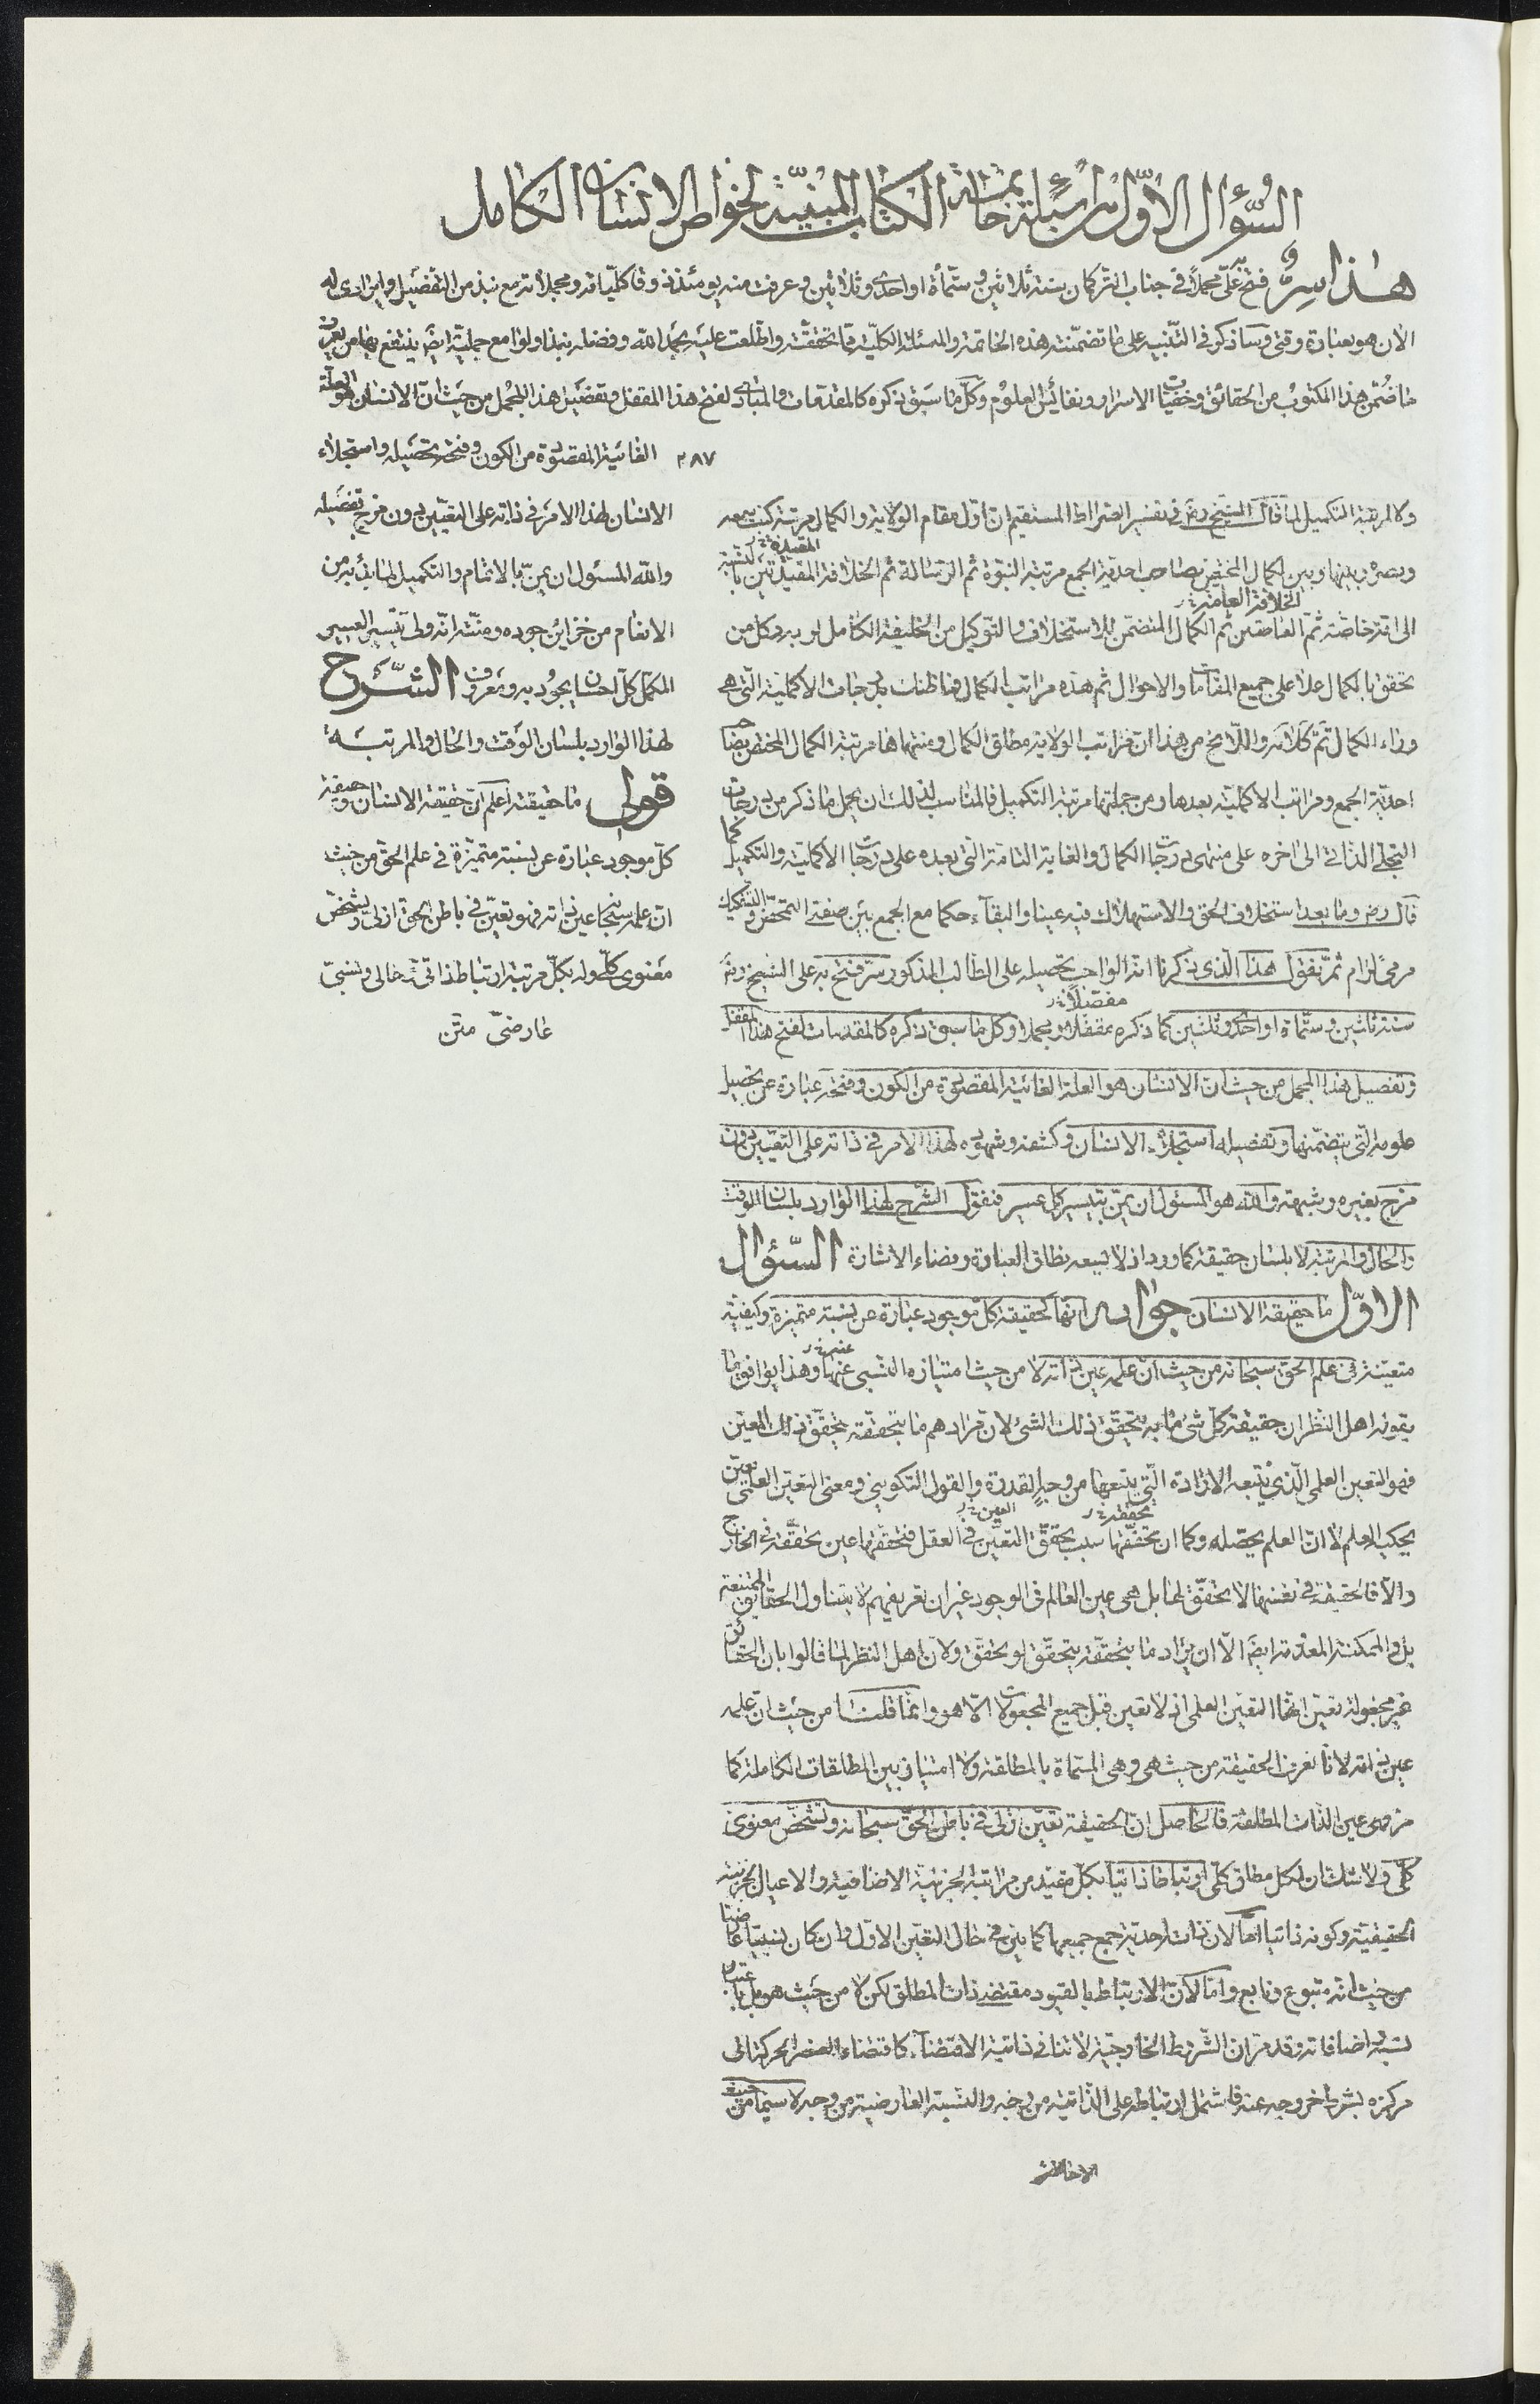 السؤال الاوّل من اسئلة خاتمة الكتاب المبنيّة لخواص الانسان الكامل
هذا سرّ فتح به علىّ مجملاً فى جناب التركمان سنة ثلاثين وستمأة او احدى وثلاثين وعرفت منه يومئذ ذوقا كلّياته ومجملاته مع نبذ من التفضيل وابرازى له
الان هو بعبارة وقتى وساذكر فى التنبيه على ما تضمّنته هذه الخاتمة والمسئلة الكلّية ممّا تحققته واطّلعت عليه بحمد الله وفضله نبذا ولوامع جمليّة ايض ينتفع بها من يعرف
ما ضُمّن هذا المكتوب من الحقائق وخفيّات الاسرار ونفائس العلوم وكلّ ما سبق ذكره كالمقدمات والمبادى لفتح هذا المقفل وتفضيل هذا المجمل من حيث انّ الانسان هو العلّة
الغائية المقصودة من الكون وفتحه بتحصيله واستجلاء
٢٨٧
الانسان لهذا الامر فى ذاته على التعيّين بدون مزج تفضيله
والله المسئول ان يمنّ بالاتمام والتكميل لهابئد من
الانعام من خزاين جوده ومنّته انه ولى تيسير العسير
المكمّل كلّ احسان بجوده ومعروف الشّرح
لهذا الوارد بلسان الوقت والحال والمرتبة
قولى ما حقيقته اعلم انّ حقيقة الانسان وحقيقة
كلّ موجود عبارة عن نسبة متميّزة فى علم الحق من حيث
انّ علمه سبحا عين ذاته فهو تعيّن فى باطن الحق ازلى وتشخّص
معنوى كلّى وله بكلّ مرتبة ارتباط ذاتىّ حالى ونسبىّ
عارضىّ متن
ولا لمرتبة التكميل لما قال الشيخ رض فى تفسير الصراط المستقيم ان اوّل مقام الولاية والكمال مرتبة كنت سمعه
وبصره وبينها وبين الكمال المختص بصاحب احدية الجمع مرتبة النبوّة ثم الرسالة ثم الخلافة المقيّدتين بالنسبة
المقيدة
الخلافة العامة
الى امّة خاصّة ثم العامتين ثم الكمال المتضمن للاستخلاف والتوكيل من الخليفة الكامل لربه وكل من
تحقق بالكمال علا على جميع المقامات والاحوال ثم هذه مراتب الكمال فما ظنك بدرجات الاكملية التى هى
وراء الكمال تمّ كلامه واللايح من هذا ان مراتب الولاية مطلق الكمال ومنتهاها مرتبة الكمال المختص بصاحب
احديّة الجمع ومراتب الاكمليّة بعدها ومن جملتها مرتبة التكميل فالمناسب لذلك ان يحمل ما ذكر من درجات
التجلى الذاتى الى اخره على منتهى درجات الكمال والغاية التامّة التى بعده على درجات الاكمليّة والتكميل كما
قال رض وما بعد استخلاف الحق والاستهلاك فيه عينا والبقآء حكما مع الجمع بين صفتى التمحّض والتشكيك
مرمىً لرام ثمّ نقول هذا الّذى ذكرنا انه الواجب تحصيله على الطالب المذكور سرّ فتح به على الشيخ رض
مفصّلاً
سنة ثلثين وستّمأة او احدى وثلثين كما ذكره مقفلا ومجملا وكل ما سبق ذكره كالمقدمات لفتح هذا المقفل
وتفصيل هذا المجمل من حيث انّ الانسان هو العلة الغائية المقصودة من الكون وفتحه عبارة عن تحصيل
علومه الّتى يتضمّنها وتفصيله استجلآء الانسان وكشفه وشهوده لهذا الامر فى ذاته على التعيّين دون
مزج بغيره وشبهة والله هو المسئول ان يمنّ بتيسير كل عسير فنقول الشّرح لهذا الوارد بلسان الوقت
والحال والمرتبة لا بلسان حقيقة كما ورد اذ لا يسعه نطاق العبارة وفضاء الاشارة السّئوال
الاوّل ما حقيقة الانسان جوابه انها كحقيقة كل موجود عبارة عن نسبة متميزة وكيفيّة
عنه
متعيّنة فى علم الحق سبحانه من حيث انّ علمه عين ذاته لا من حيث امتيازه النسبى عنها وهذا يوافق ما
يقوله اهل النظر ان حقيقة كلّ شئ ما به يتحقّق ذلك الشئ لان مرادهم ما بتحققه يتحقّق ذلك المعيّن
فهو التعين العلمى الّذى يتبعه الارادة التى يتبعها من وجه القدرة والقول التكوينى ومعنى التعيّن العلمى تعيّن
تحققه
العين
يحكيه العلم لا انّ العلم يحصله وكما ان تحققها سبب تحقّق التعيّن فى العقل فتحققها عين تحقّقه فى الخارج
والّا فالحقيقة فى نفسها لا تحقّق لها بل هى عين العالم فى الوجود غير ان تعريفهم لا يتناول الحقائق الممتنعة
بل والممكنة المعدومة ايض الّا ان يراد ما بتحققه يتحقّق لو تحقّق ولانّ اهل النظر لما قالوا بان الحقائق
غير مجعولة تعيّن انها التعيّن العلمى اذ لا تعين قبل جميع المجعولات الّا هو وانّما قلنا من حيث انّ علمه
عين ذاته لانا نعرف الحقيقة من حيث هى وهى المسمّاة بالمطلقة ولا امتياز بين المطلقات الكاملة كما
مر هى عين الذّات المطلقة فالحاصل انّ الحقيقة تعيّن ازلى فى باطن الحقّ سبحانه وتشخّص معنوى
كلّى ولا شك ان لكل مطلق كلّى ارتباطا ذاتيّا بكلّ مقيّد من مراتبه الجزئيّة الاضافية والاعيان الجزئية
الحقيقيّة وكونه ذاتيا امّا لان ذاته احديّة جمع جميعها كما يبيّن فى حال التعيّن الاوّل وان كان نسبيّا عارضيّا
من حيث انه متبوع وتابع وامّا لانّ الارتباط بالقيود مقتضى ذات المطلق لكن لا من حيث هو بل باعتبار
نسبه واضافاته وقد مرّ ان الشّروط الخارجيّة لا تنافى ذاتية الاقتضآء كاقتضاء العنصر الحركة الى
مركزه بشرط خروجه عنه فاشتمل ارتباطه على الذّاتيّة من وجه والنسبة العارضية من وجه لا سيّما من حيث